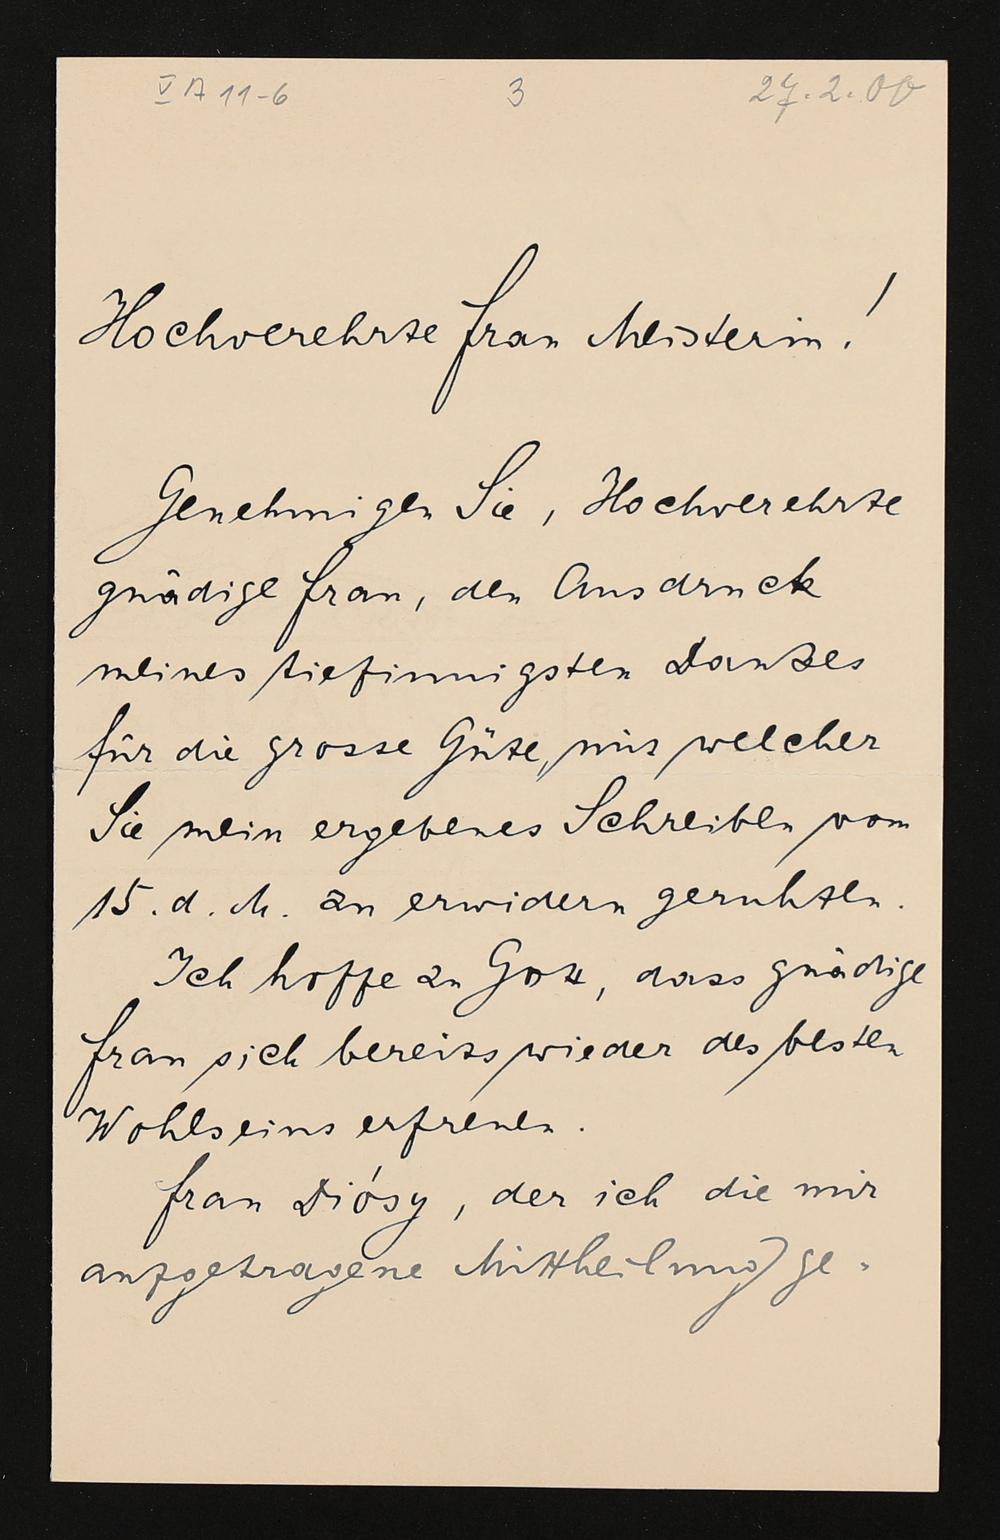 V A 11-6 3 27.2.00
Hochverehrte Frau Meisterin!
Genehmigen Sie, Hochverehrte
gnädige Frau, den Ausdruck
meines tiefinnigsten Dankes
für die grosse Güte, mit welcher
Sie mein ergebenes Schreiben vom
15. d. M. zu erwidern geruhten.
Ich hoffe zu Gott, dass gnädige
Frau sich bereits wieder des besten
Wohlseins erfreuen.
Frau Diósy, der ich die mir
aufgetragene Mittheilung ge-